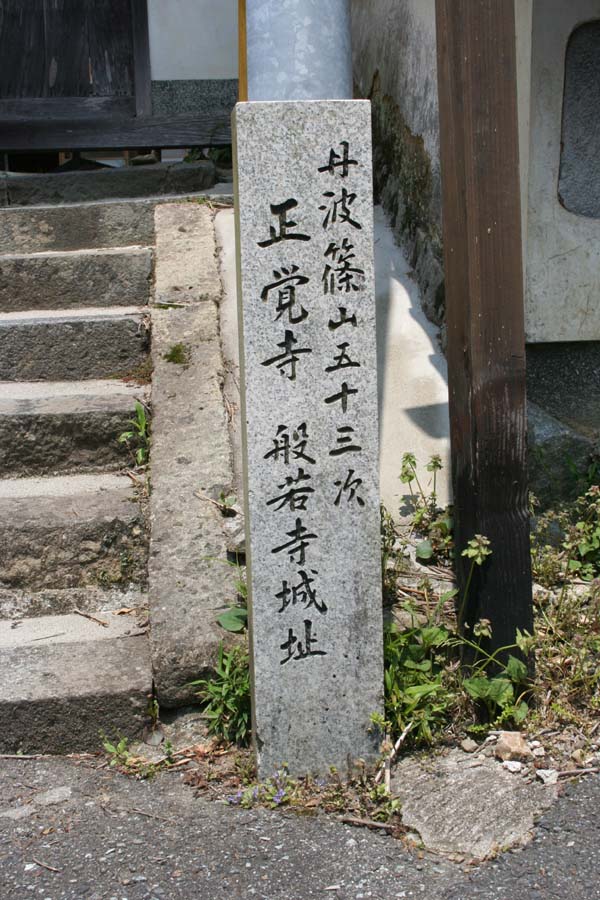 丹波篠山五十三次
正覚寺 般若寺城址